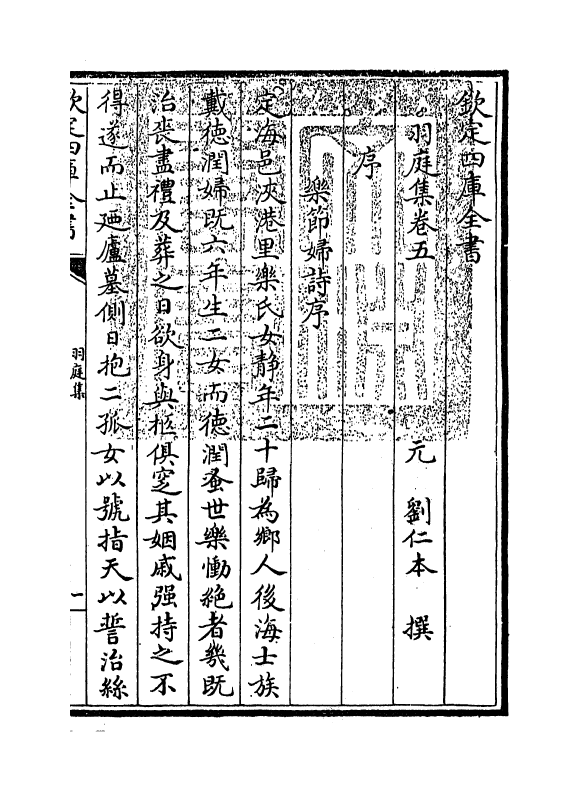 欽定四庫全書
羽庭集卷五
元 劉仁本 撰
序
樂節婦詩序
定海邑浹港里樂氏女靜年二十歸為鄉人後海士族
戴徳潤婦既六年生二女而徳潤蚤世樂慟絶者幾既
治喪盡禮及葬之日欲身與柩俱窆其姻戚强持之不
得遂而止廼廬墓側日抱二孤女以號指天以誓治絲
欽定四庫全書
羽庭集
一